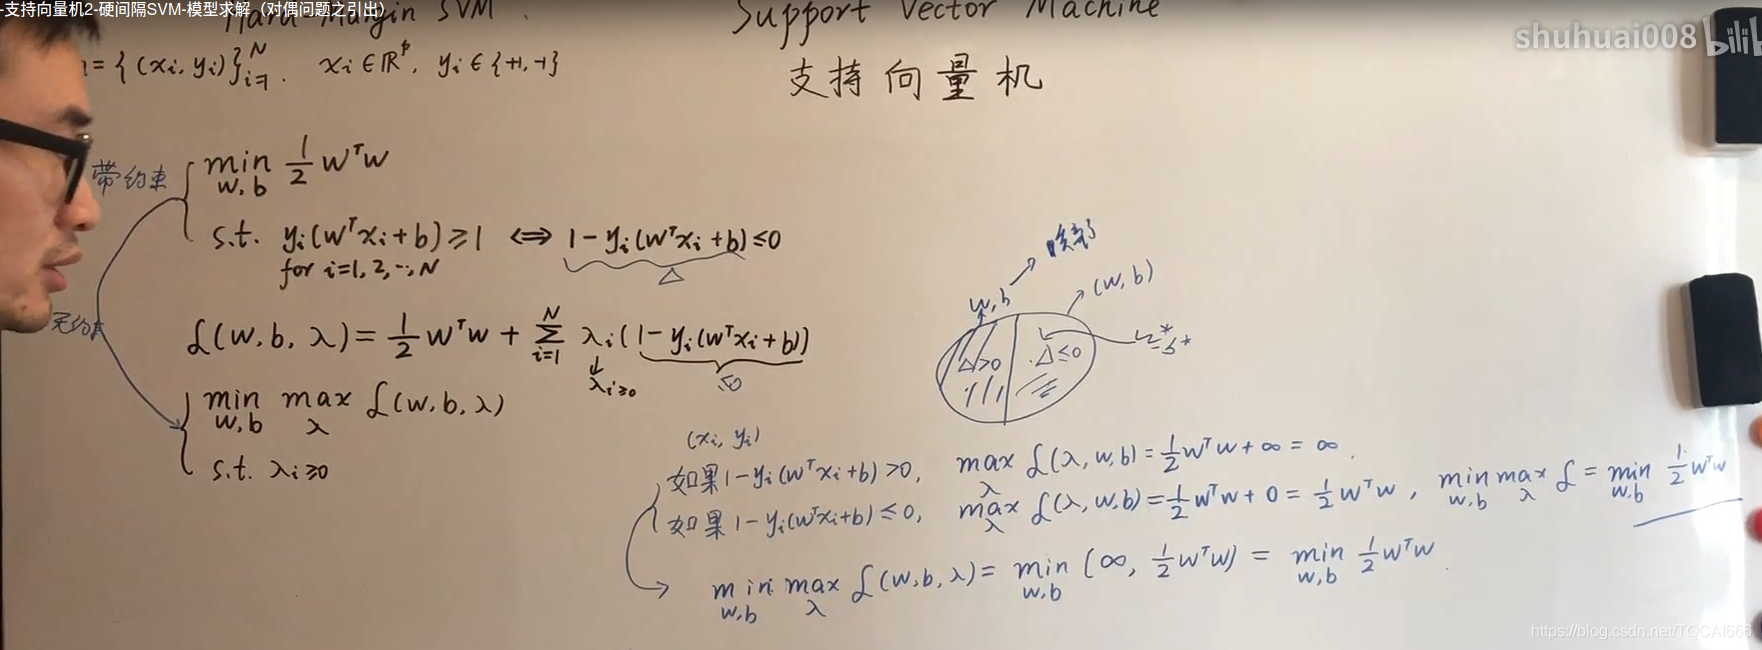 -支持向量机2-硬间隔SVM-模型求解（对偶问题之引出）
Hard Margin SVM
Support Vector Machine
支持向量机
shuhuai008 bilib
= {(xi, yi)}_{i=1}^N. xi ∈ ℝ^p, yi ∈ {+1, -1}
带约束
min_{w,b} 1/2 w^T w
s.t. yi(w^T xi + b) ≥ 1 ⟺ 1 - yi(w^T xi + b) ≤ 0
for i=1, 2, ..., N
Δ
无约束
L(w, b, λ) = 1/2 w^T w + Σ_{i=1}^N λi(1 - yi(w^T xi + b))
λi ≥ 0
≤0
min_{w,b} max_λ L(w, b, λ)
s.t. λi ≥ 0
w, b
(w, b)
Δ>0
Δ≤0
(xi, yi)
如果 1 - yi(w^T xi + b) > 0, max_λ L(λ, w, b) = 1/2 w^T w + ∞ = ∞.
如果 1 - yi(w^T xi + b) ≤ 0, max_λ L(λ, w, b) = 1/2 w^T w + 0 = 1/2 w^T w, min_{w,b} max_λ L = min_{w,b} 1/2 w^T w
min_{w,b} max_λ L(w, b, λ) = min_{w,b} (∞, 1/2 w^T w) = min_{w,b} 1/2 w^T w
https://blog.csdn.net/TQCAI666